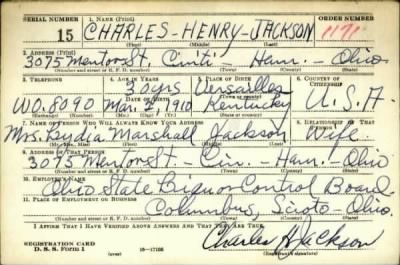 SERIAL NUMBER 1. NAME (Print) ORDER NUMBER
15 CHARLES - HENRY - JACKSON
(First) (Middle) (Last)
2. ADDRESS (Print)
3075 Mentor St. Cinti - Ham. - Ohio
(Number and street or R. F. D. number) (Town) (County) (State)
3. TELEPHONE 4. AGE IN YEARS 5. PLACE OF BIRTH 6. COUNTRY OF CITIZENSHIP
30 yrs Versailles
DATE OF BIRTH (Town or county)
WO. 8090 Mar. 2, 1910 Kentucky U.S.A.
(Exchange) (Number) (Mo.) (Day) (Yr.) (State or country)
7. NAME OF PERSON WHO WILL ALWAYS KNOW YOUR ADDRESS 8. RELATIONSHIP OF THAT PERSON
Mrs. Lydia Marshall Jackson Wife
(Mr., Mrs., Miss) (First) (Middle) (Last)
9. ADDRESS OF THAT PERSON
3075 Mentor St - Cin. - Ham. - Ohio
(Number and street or R. F. D. number) (Town) (County) (State)
10. EMPLOYER'S NAME
Ohio State Liquor Control Board
11. PLACE OF EMPLOYMENT OR BUSINESS
Columbus, Scioto - Ohio.
(Number and street or R. F. D. number) (Town) (County) (State)
I AFFIRM THAT I HAVE VERIFIED ABOVE ANSWERS AND THAT THEY ARE TRUE.
REGISTRATION CARD
D. S. S. Form 1 (over) Charles H Jackson
(Registrant's signature)